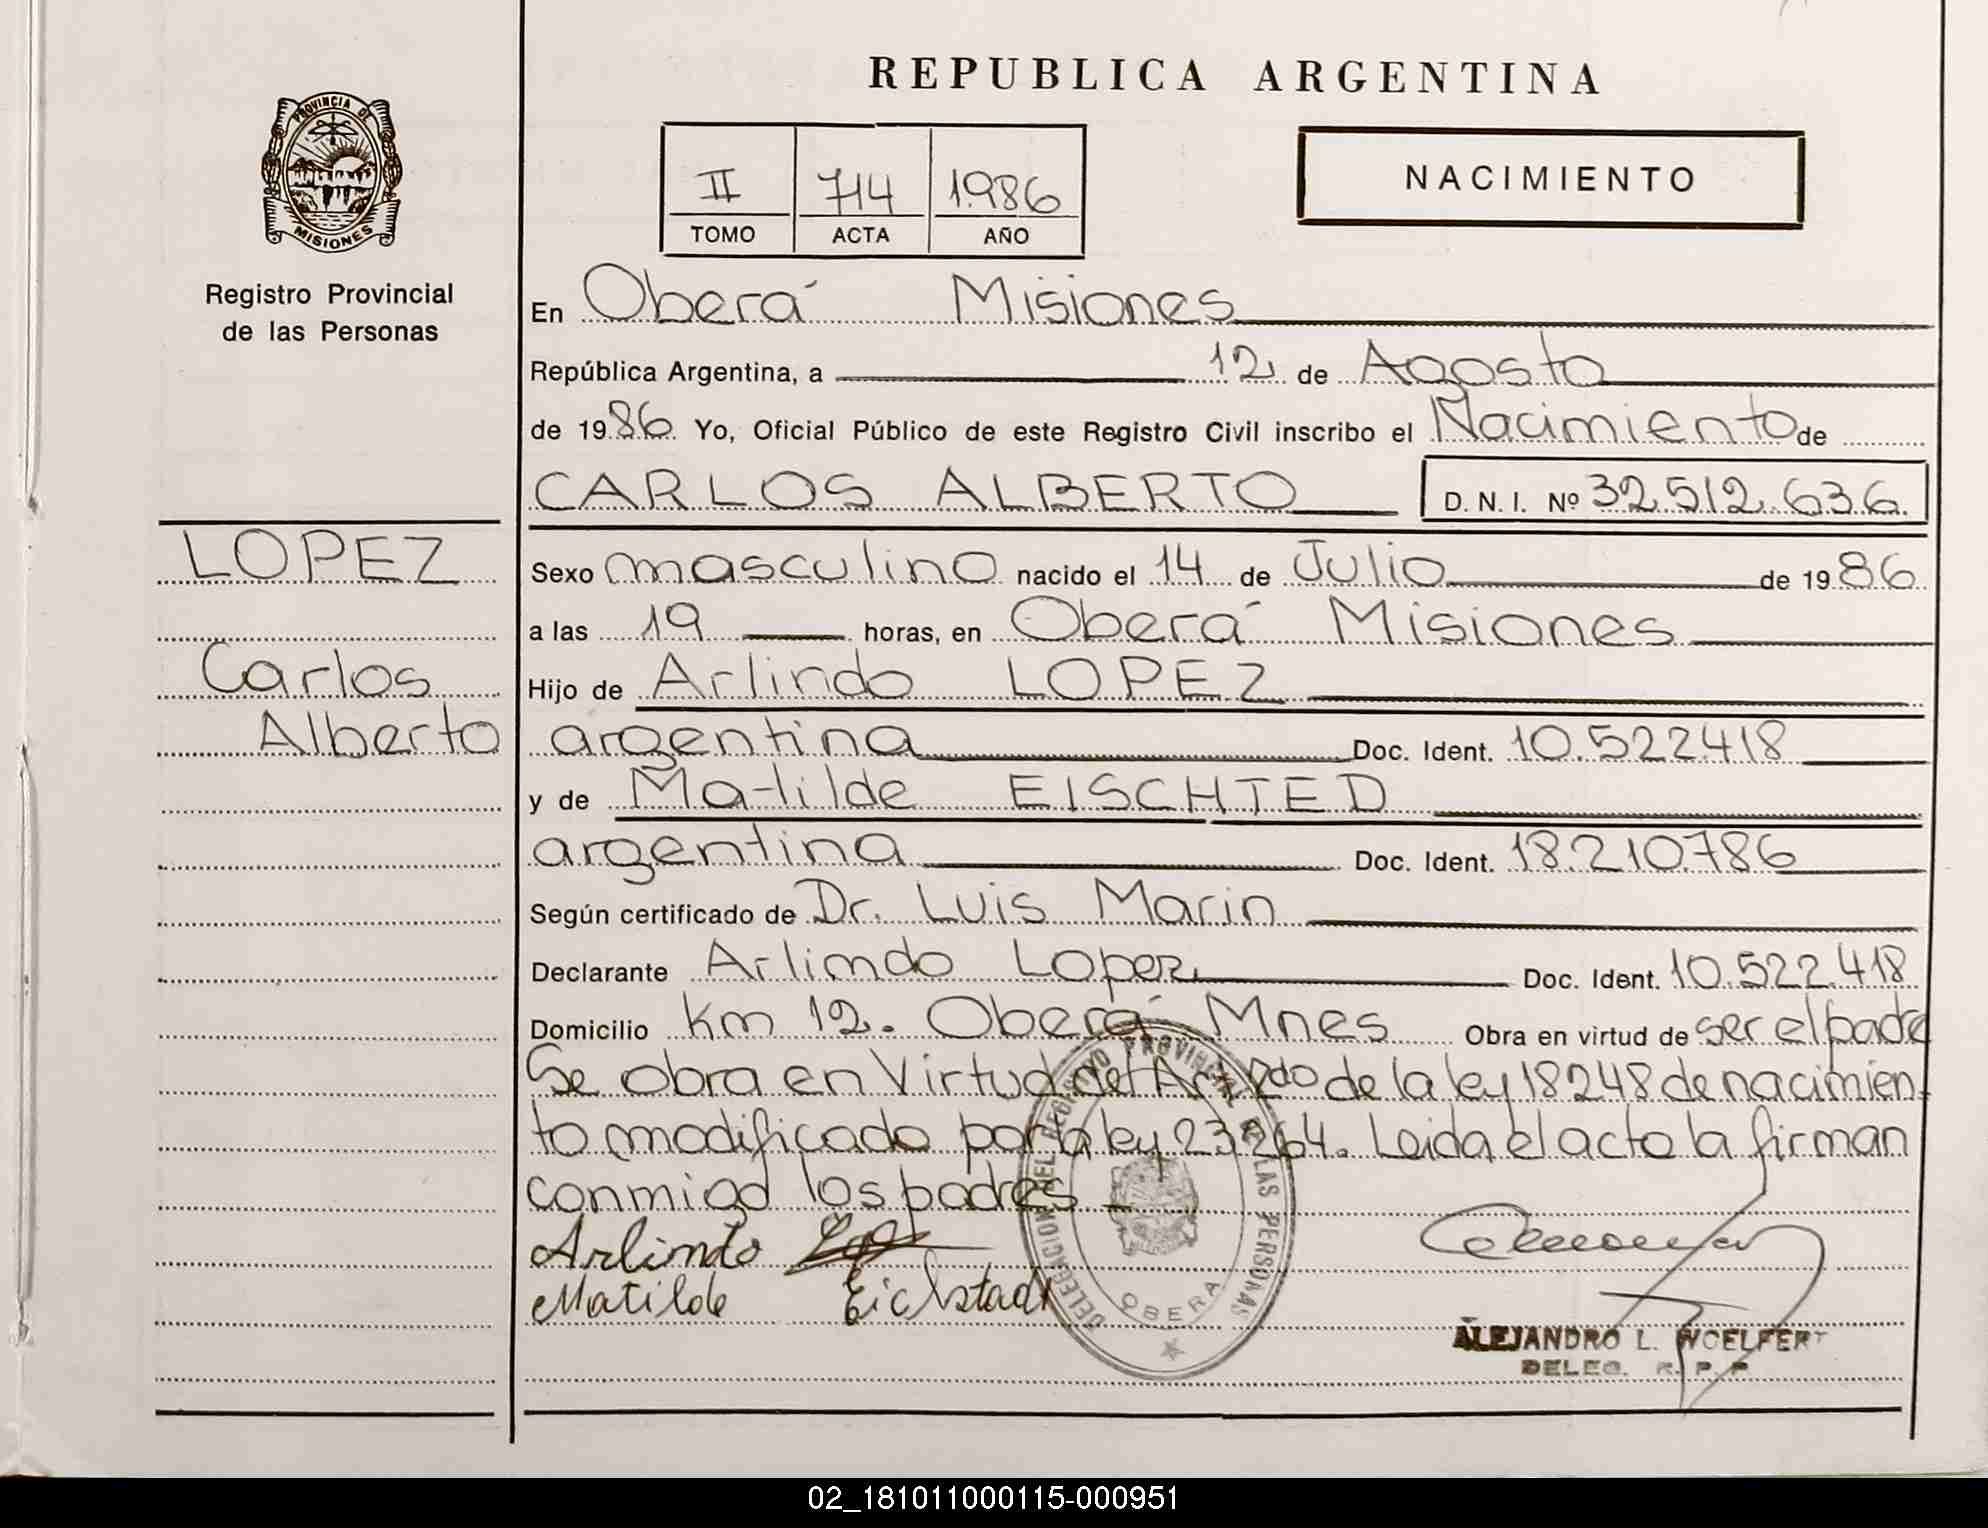 REPUBLICA ARGENTINA
PROVINCIA DE
MISIONES
II 714 1986
TOMO ACTA AÑO
NACIMIENTO
Registro Provincial
de las Personas
En Oberá Misiones
República Argentina, a 12 de Agosto
de 1986 Yo, Oficial Público de este Registro Civil inscribo el Nacimiento de
CARLOS ALBERTO D. N. I. Nº 32.512.636.
LOPEZ
Carlos
Alberto
Sexo masculino nacido el 14 de Julio de 1986
a las 19 horas, en Oberá Misiones
Hijo de Arlindo LOPEZ
argentina Doc. Ident. 10.522.418
y de Matilde EISCHTED
argentina Doc. Ident. 18.210.786
Según certificado de Dr. Luis Marin
Declarante Arlimdo Lopez Doc. Ident. 10.522.418
Domicilio Km 12. Oberá Mnes Obra en virtud de ser el padre
Se obra en Virtud del Ar 2do de la ley 18248 de nacimien
to modificado por la ley 23264. Leida el acto la firman
conmigo los padres
Arlindo
Matilde Eichstadt
DELEGACION DEL REGISTRO PROVINCIAL DE LAS PERSONAS
OBERA
ALEJANDRO L. WOELFERT
DELEG. R. P. P.
02_181011000115-000951